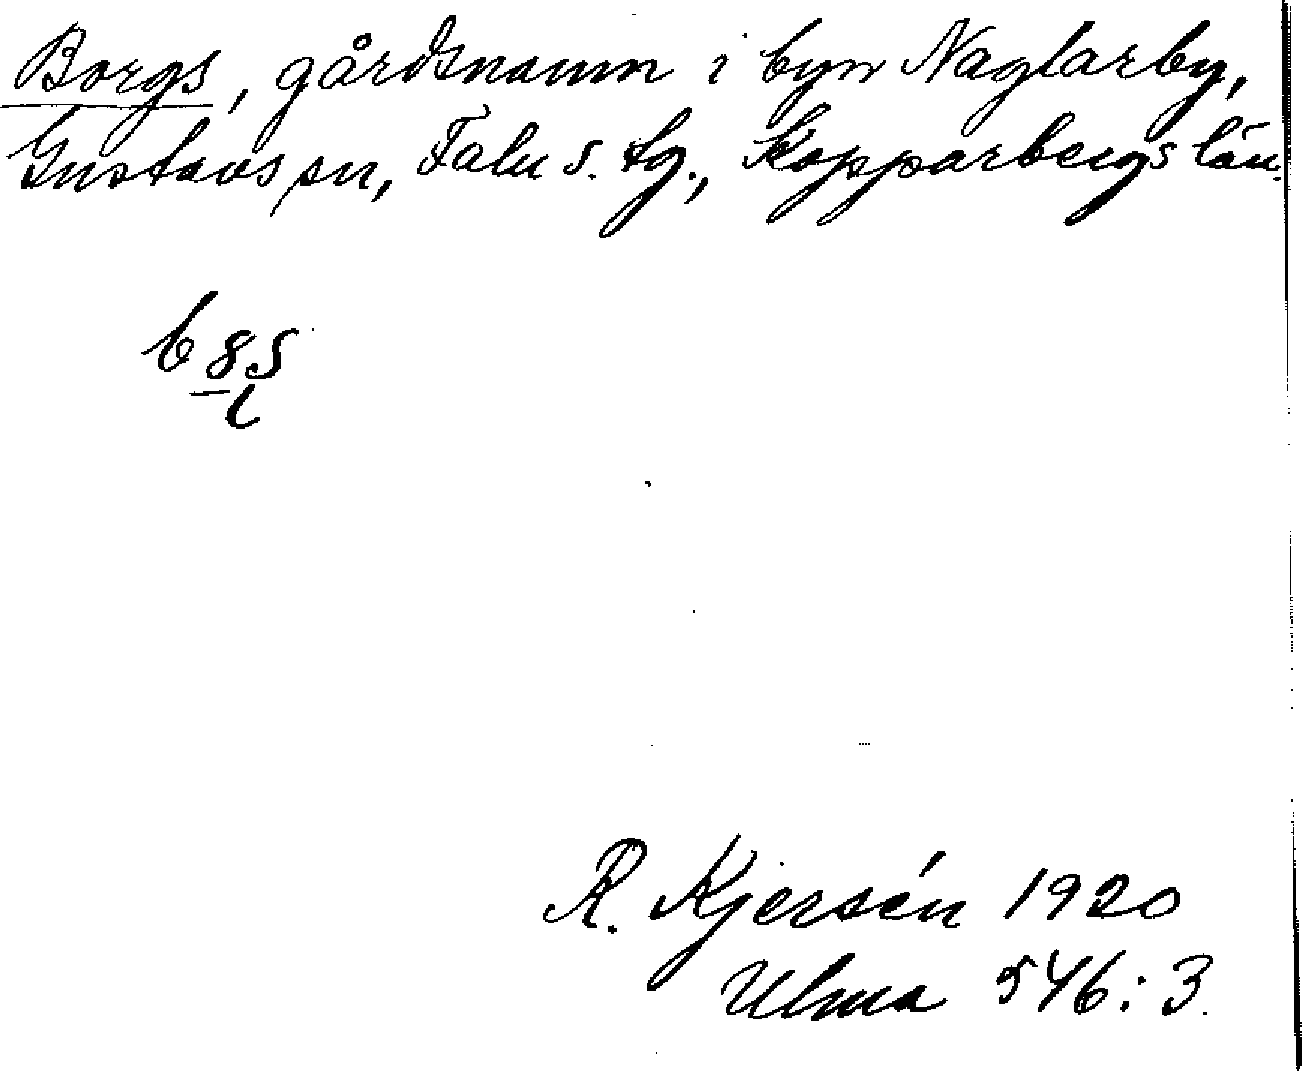 Borgs, gårdsnamn i byn Naglarby,
Gustavs sn, Falu s. tg., Kopparbergs län.
R. Kjersén 1920
Ulma 546:3.